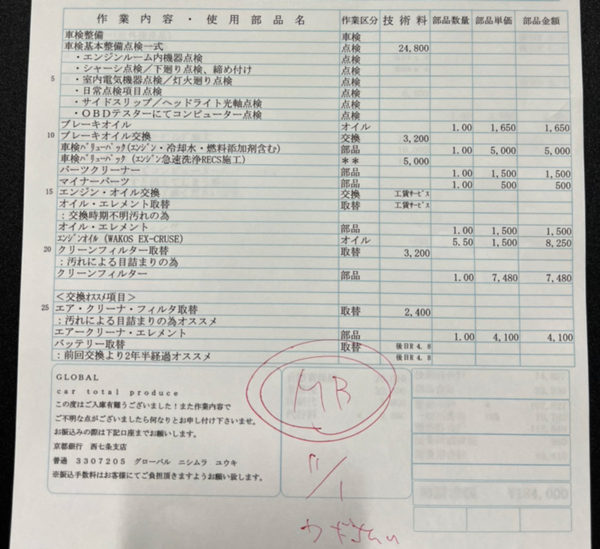 作業内容・使用部品名 作業区分 技術料 部品数量 部品単価 部品金額
車検整備 車検
車検基本整備点検一式 点検 24,800
・エンジンルーム内機器点検 点検
・シャーシ点検／下廻り点検、締め付け 点検
5 ・室内電気機器点検／灯火廻り点検 点検
・日常点検項目点検 点検
・サイドスリップ／ヘッドライト光軸点検 点検
・OBDテスターにてコンピューター点検 点検
ブレーキオイル オイル 1.00 1,650 1,650
10 ブレーキオイル交換 交換 3,200
車検ﾊﾞﾘｭｰﾊﾟｯｸ(ｴﾝｼﾞﾝ・冷却水・燃料添加剤含む) 部品 1.00 5,000 5,000
車検ﾊﾞﾘｭｰﾊﾟｯｸ (ｴﾝｼﾞﾝ急速洗浄RECS施工) ＊＊ 5,000
パーツクリーナー 部品 1.00 1,500 1,500
マイナーパーツ 部品 1.00 500 500
15 エンジン・オイル交換 交換 工賃ｻｰﾋﾞｽ
オイル・エレメント取替 取替 工賃ｻｰﾋﾞｽ
：交換時期不明汚れの為
オイル・エレメント 部品 1.00 1,500 1,500
ｴﾝｼﾞﾝｵｲﾙ (WAKOS EX-CRUSE) オイル 5.50 1,500 8,250
20 クリーンフィルター取替 取替 3,200
：汚れによる目詰まりの為
クリーンフィルター 部品 1.00 7,480 7,480
＜交換ｵｽｽﾒ項目＞
25 エア・クリーナ・フィルタ取替 取替 2,400
：汚れによる目詰まりの為オススメ
エアークリーナ・エレメント 部品 1.00 4,100 4,100
バッテリー取替 取替 後日R4.8
：前回交換より2年半経過オススメ 後日R4.8
GLOBAL
car total produce
この度はご入庫有難うございました！また作業内容で
ご不明な点がございましたら何なりとお申し付け下さいませ。
お振込みの際は下記口座までお願いします。
京都銀行 西七条支店
普通 3307205 グローバル ニシムラ ユウキ
※振込手数料はお客様にてご負担頂きますようお願い致します。
11/1